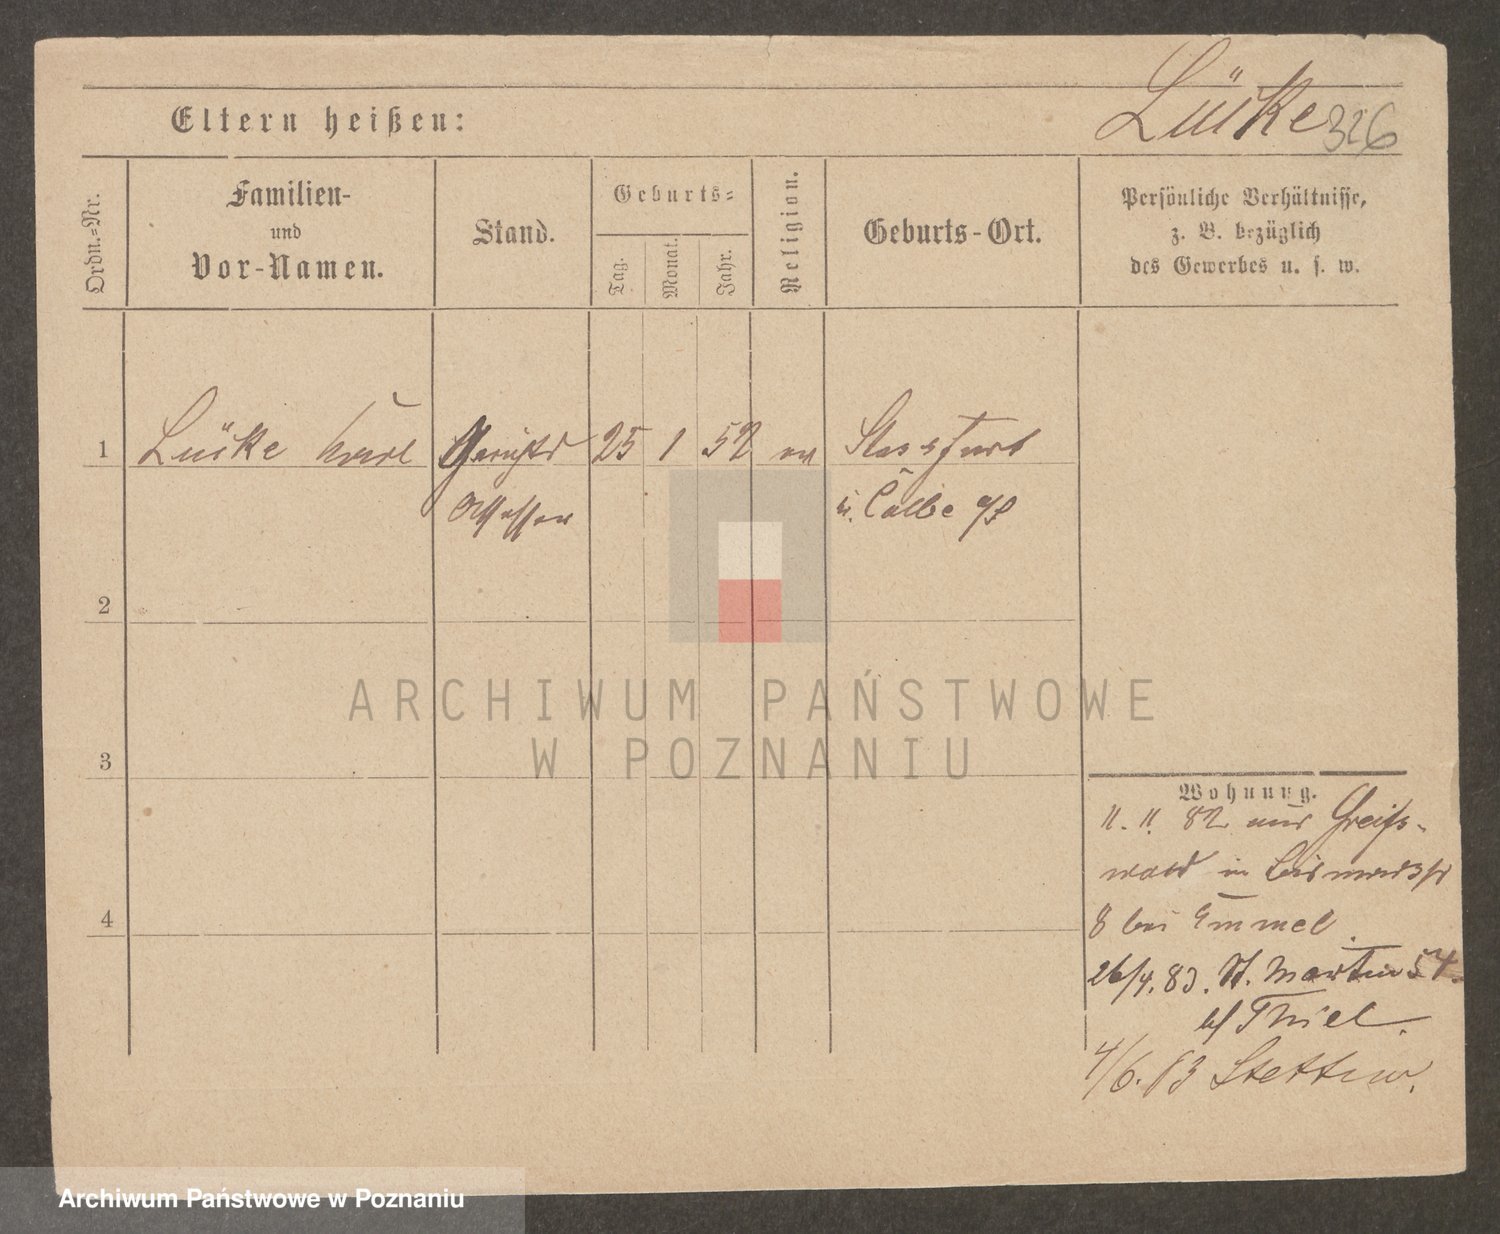 Lücke 326
Eltern heißen:
Ordn.-Nr.
Familien-
und
Vor-Namen.
Stand.
Geburts-
Tag.
Monat.
Jahr.
Religion.
Geburts-Ort.
Persönliche Verhältnisse,
z. B. bezüglich
des Gewerbes u. s. w.
1 Lücke Karl Gerichts 25 1 52 ev Stassfurt
Assessor u. Calbe a/S
2
3
4
ARCHIWUM PAŃSTWOWE
W POZNANIU
Wohnung.
11. 11. 82 aus Greifs-
wald in Bismarckstr
8 bei Emmel.
26/4. 83. St. Martin 54.
b/ Thiel.
4/6. 83 Stettin.
Archiwum Państwowe w Poznaniu